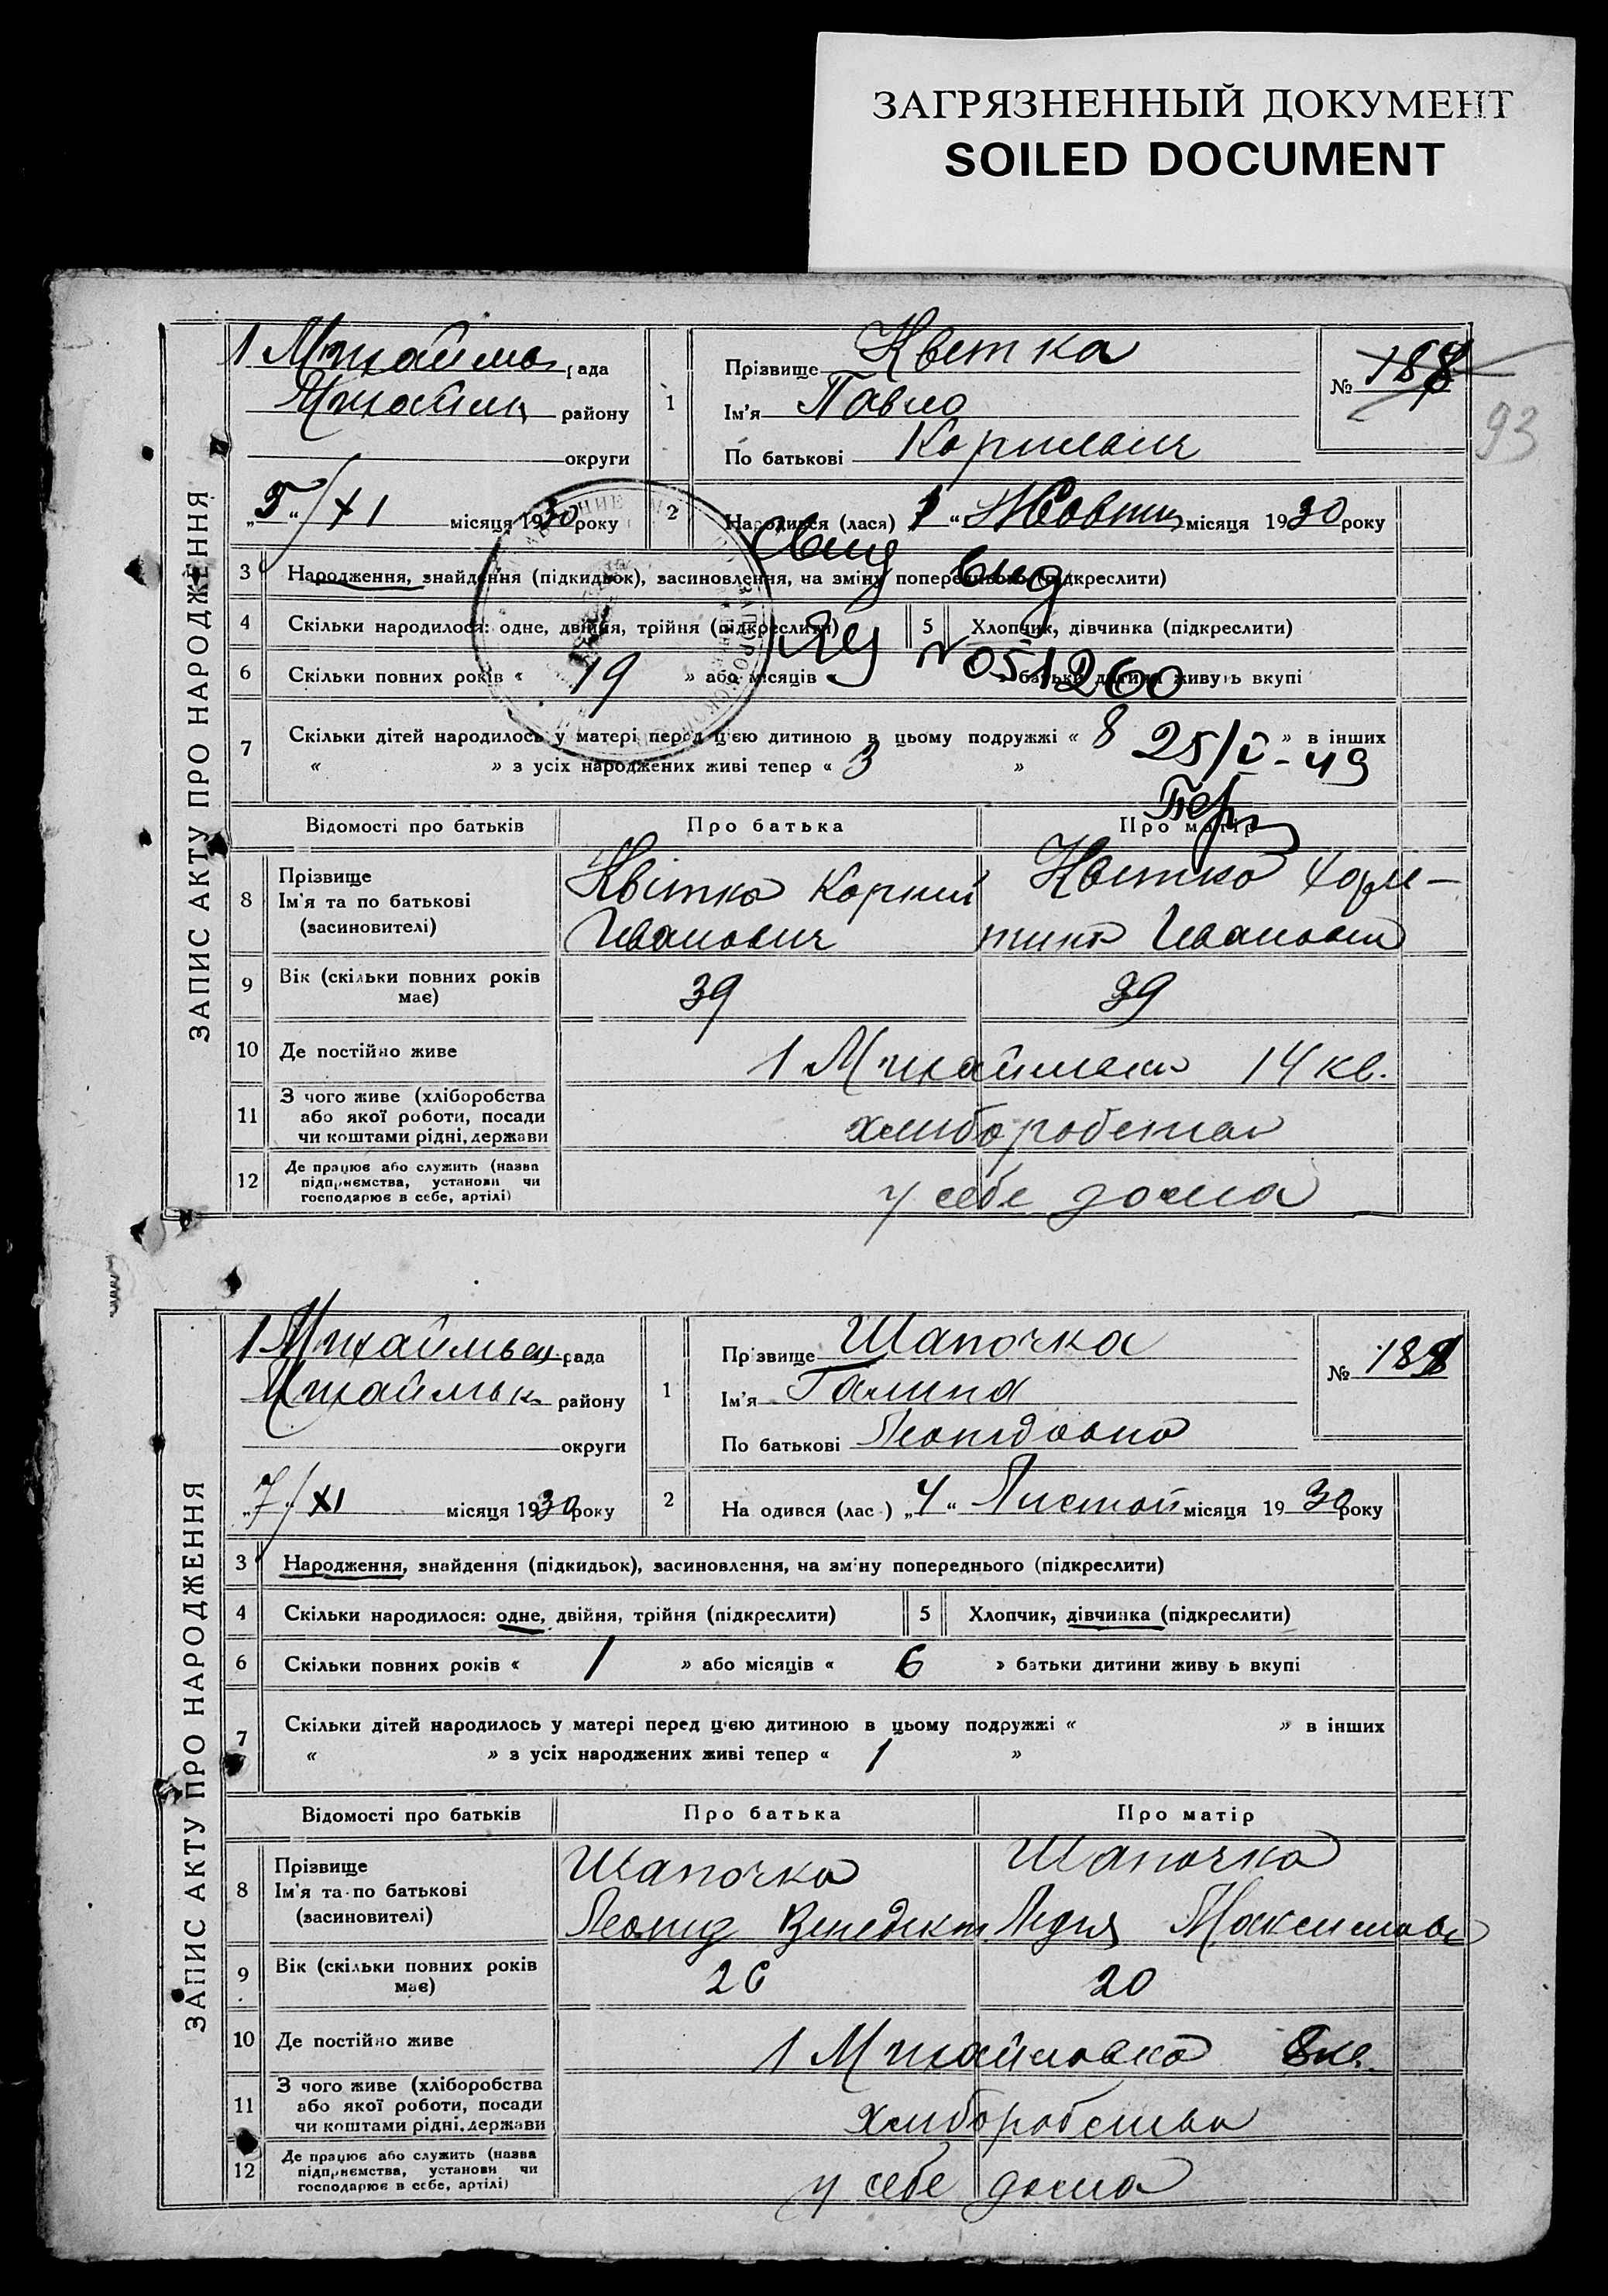 ЗАГРЯЗНЕННЫЙ ДОКУМЕНТ
SOILED DOCUMENT
ЗАПИС АКТУ ПРО НАРОДЖЕННЯ
1 рада
району
округи
„5“/XI місяця 1930 року
1
Прізвище Квітка
Ім'я Павло
По батькові
№ 188
93
2
Народився (лася) 1 “ Жовтн місяця 1930 року
3 Народження, знайдення (підкидьок), засиновлення, на зміну попереднього (підкреслити)
4 Скільки народилося: одне, двійня, трійня (підкреслити)
5 Хлопчик, дівчинка (підкреслити)
6 Скільки повних років « 19 » або місяців « » батьки дитини живуть вкупі
№ 051260
7 Скільки дітей народилось у матері перед цією дитиною в цьому подружжі « 8 » в інших
« » з усіх народжених живі тепер « 3 »
25/V-49
Відомості про батьків
Про батька
Про матір
8 Прізвище
Ім'я та по батькові
(засновителі)
Квітка Корній
Иванович
Квитка Хари-
тина Ивановна
9 Вік (скільки повних років
має)
39
39
10 Де постійно живе
1 Михайловка 14 кв.
11 З чого живе (хліборобства
або якої роботи, посади
чи коштами рідні, держави
хлиборобства
12 Де працює або служить (назва
підприємства, установи чи
господарює в себе, артілі)
у себе дома
ЗАПИС АКТУ ПРО НАРОДЖЕННЯ
1 рада
району
округи
„7“/XI місяця 1930 року
1
Прізвище Шапочка
Ім'я Галина
По батькові Леонидовна
№ 189
2
На одився (лас ) „4“ Листоп місяця 1930 року
3 Народження, знайдення (підкидьок), засиновлення, на зміну попереднього (підкреслити)
4 Скільки народилося: одне, двійня, трійня (підкреслити)
5 Хлопчик, дівчинка (підкреслити)
6 Скільки повних років « 1 » або місяців « 6 » батьки дитини живу ь вкупі
7 Скільки дітей народилось у матері перед цією дитиною в цьому подружжі « » в інших
« » з усіх народжених живі тепер « 1 »
Відомості про батьків
Про батька
Про матір
8 Прізвище
Ім'я та по батькові
(засиновителі)
Шапочка
Леонид Венедикт
Шапочка
Лидия Максимовн
9 Вік (скільки повних років
має)
26
20
10 Де постійно живе
1 Михайловка 8 кв.
11 З чого живе (хліборобства
або якої роботи, посади
чи коштами рідні, держави
хлиборобства
12 Де працює або служить (назва
підприємства, установи чи
господарює в себе, артілі)
у себе дома